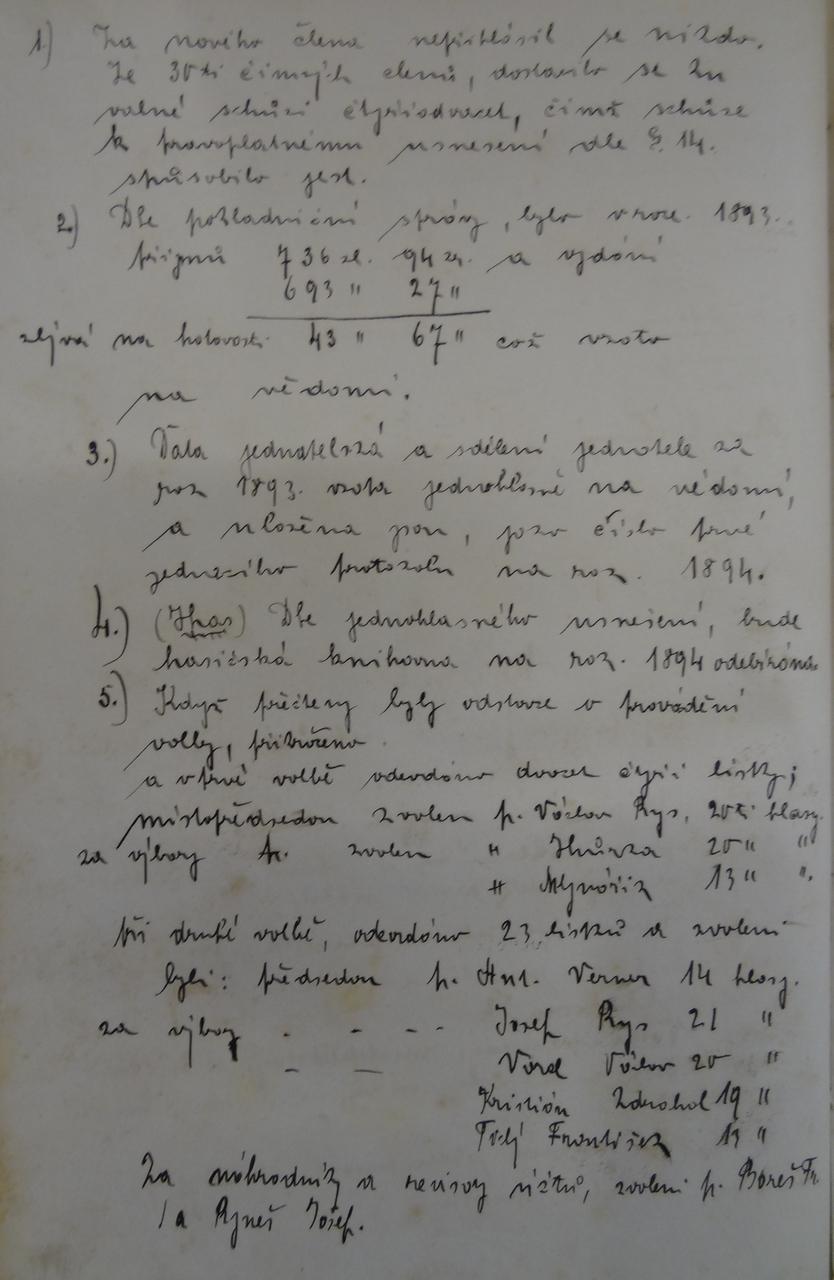 1) Za nového člena nepřihlásil se nikdo.
Ze 30ti činných členů, dostavilo se ku
valné schůzi čtyřiadvacet, čímž schůze
k pravoplatnému usnesení dle §. 14.
spůsobilo jest.
2.) Dle pokladniční správy, bylo v roce. 1893.
příjmů 736 zl. 94 kr. a vydání
693 " 27 "
zbývá na hotovosti 43 " 67 " což vzato
na vědomí.
3.) Data jednatelská a sdělení jednatele za
rok 1893. vzata jednohlasně na vědomí,
a uložena jsou, jako číslo prvé
jednacího protokolu na rok. 1894.
4.) Dle jednohlasného usnešení, bude
hasičská knihovna na rok. 1894 odebírána.
5.) Když přečteny byly odstavce o provádění
volby, přikročeno
a v prvé volbě odevdáno dvacet čtyři lístky;
místopředsedou zvolen p. Václav Rys, 20ti hlasy.
za výbory zvolen " 20 " "
" Mlynářík 13 " "
Při druhé volbě, odevdáno 23 lístků a zvoleni
byli: předsedou p. Ant. Verner 14 hlasy.
za výbory . - - - Josef Rys 21 "
- - Václav 20 "
Kristián 19 "
František 13 "
Za náhradníky a revisory účtů, zvoleni p. Bareš Fr.
a Josef.